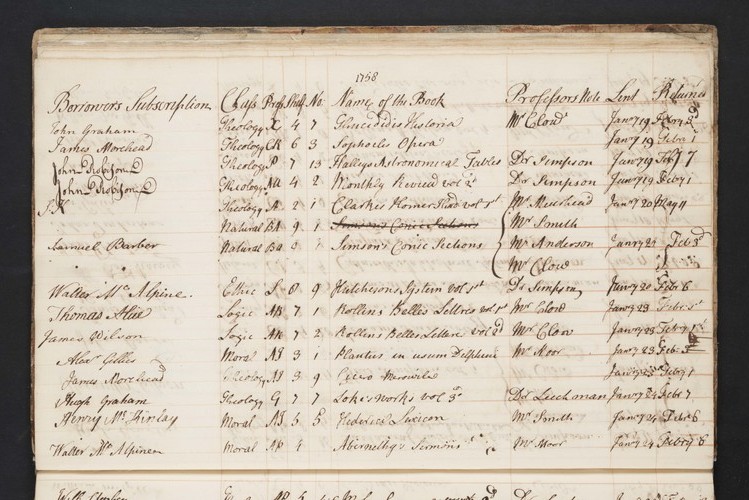 1758
Borrowers Subscription Class Press Shelf No. Name of the Book Professors Note Lent Returned
John Graham Theology X 4 7 Thucididis Historia Mr Clow Janry 19 Febry
James Morehead Theology 6 3 Sophocles Opera Janry 19 Febry 1
John Robison Theology P 7 13 Halleys Astronomical Tables Dr Simpson Janry 19 Feb 17
John Robison Theology 4 2 Monthly Review vol 2d Dr Simpson Janry 19 Febry 1
Theology A 2 1 Clarkes Homer Iliad vol 1st Mr Muirhead Janry 20 May 11
Natural BA 9 1 Simson's Conic Sections Mr Smith
Samuel Barber Natural 1 Simson's Conic Sections Mr Anderson Janry 24 Feb 3d
Mr Clow
Walter Mc Alpine. Ethic 8 9 Hutchesons System vol 1st Dr Simpson Janry 20 Febr 6
Thomas Logic 7 1 Rollens Belles Lettres vol 1st Mr Clow Janry 23 Febr 1st
James Wilson Logic 7 2 Rollens Belles Lettres vol 2d Mr Clow Janry 23 Febry 1st
Alexr Gillies Moral 3 1 Plautus in usum Delphini Mr Moor Janry 23 Feb
James Morehead Theology 3 9 Cicero Janry 23 Febry 1
Hugh Graham Theology G 7 7 Loke's works vol 3d Dr Leechman Janry 24 Febr 7
Henry Mc Kinlay Moral 5 5 Hederici Lexicon Mr Smith Janry 24 Febr 6
Walter Mc Alpine Moral 4 Abernethy's Sermons Mr Moor Janry 24 Febry 6